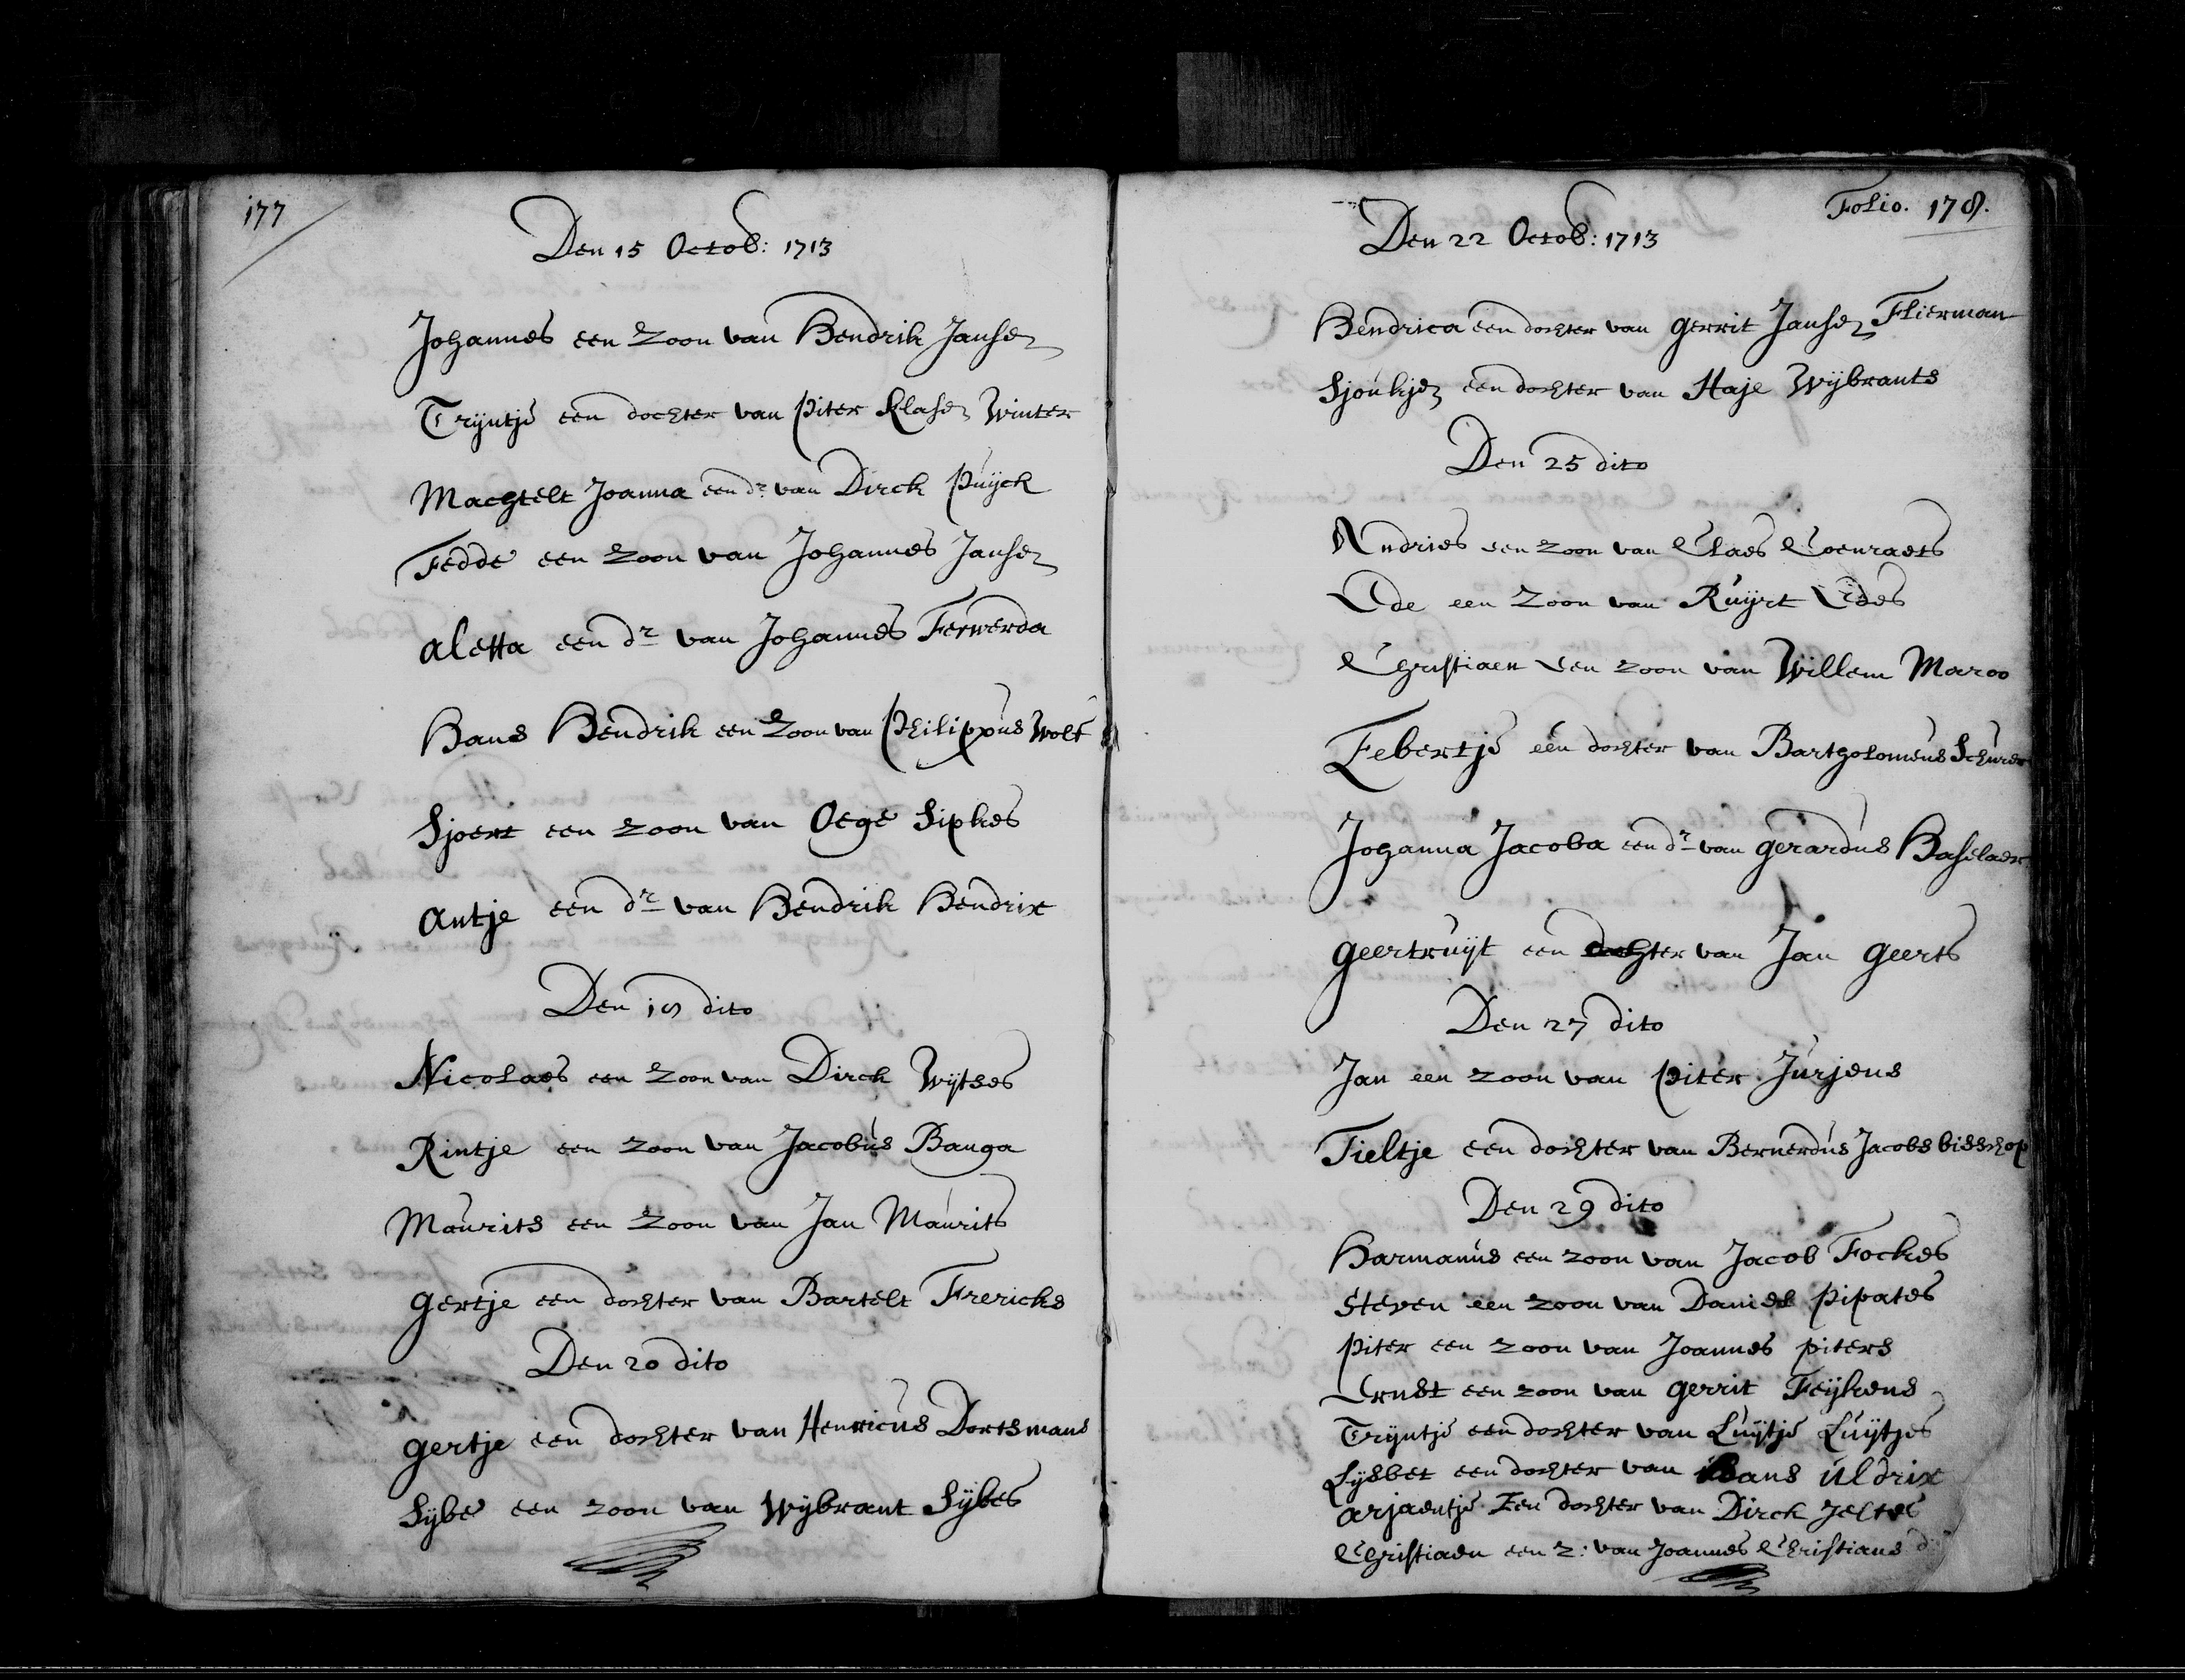 177
Den 15 Octob: 1713
Johannes een zoon van Hendrik Jansen
Trijntje een dochter van Piter Klasen Winter
Machtelt Joanna een dr van Dirck Puijck
Fedde een zoon van Johannes Jansen
aletta een dr van Johannes Ferwerda
Hans Hendrik een zoon van Philippus Wolf
Sjoert een zoon van Oege Sipkes
Antje een dr van Hendrik Hendrix
Den 18 dito
Nicolaes een zoon van Dirck Wijtses
Rintje een zoon van Jacobus Banga
Maurits een zoon van Jan Maurits
gertje een dochter van Bartelt Frericks
Den 20 dito
gertje een dochter van Henricus Dortsmans
Sijbe een zoon van Wijbrant Sijbes
Folio. 178.
Den 22 Octob: 1713
Hendrica een dochter van gerrit Jansen Flierman
Sjoukjen een dochter van Haje Wijbrants
Den 25 dito
Andries een zoon van Claes Coenraets
Ede een zoon van Ruijrt Edes
Christiaen een zoon van Willem Maroo
Febertje een dochter van Bartholomeus Schurer
Johanna Jacoba een dr van gerardus Baselaer
geertruijt een dochter van Jan geerts
Den 27 dito
Jan een zoon van Piter Jurjens
Tieltje een dochter van Bernerdus Jacobs bisschop
Den 29 dito
Harmanus een zoon van Jacob Fockes
Steven een zoon van Daniel Pipates
Piter een zoon van Joannes piters
Ernst een zoon van gerrit Feijkens
Trijntje een dochter van Luijtje Luijtjes
Lijsbet een dochter van Hans uldrix
arjaentje Een dochter van Dirck Jeltes
Christiaen een z: van Joannes Christians